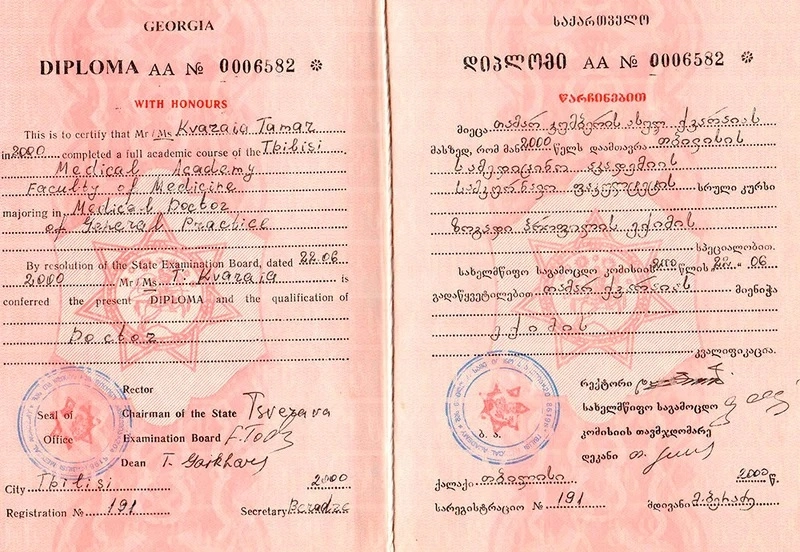 GEORGIA
DIPLOMA AA № 0006582 *
WITH HONOURS
This is to certify that Mr / Ms Kvaraia Tamar
in 2000 completed a full academic course of the Tbilisi
Medical Academy
Faculty of Medicine
majoring in Medical Doctor
of General Practice
By resolution of the State Examination Board, dated 22.06
2000 Mr / Ms T. Kvaraia is
conferred the present DIPLOMA and the qualification of
Doctor
Rector
Seal of Chairman of the State
Office Examination Board
Dean
City Tbilisi 2000
Registration № 191 Secretary
საქართველო
დიპლომი AA № 0006582 *
წარჩინებით
მიეცა თამარ ჯუმბერის ასულ ქვარაიას
მასზედ, რომ მან 2000 წელს დაამთავრა თბილისის
სამედიცინო აკადემიის
სამკურნალო ფაკულტეტის სრული კურსი
ზოგადი პროფილის ექიმის
სპეციალობით.
სახელმწიფო საგამოცდო კომისიის 2000 წლის 22 " 06
გადაწყვეტილებით თამარ ქვარაიას მიენიჭა
ექიმის
კვალიფიკაცია.
რექტორი
სახელმწიფო საგამოცდო
ბ. ა. კომისიის თავმჯდომარე
დეკანი
ქალაქი თბილისი 2000 წ.
სარეგისტრაციო № 191 მდივანი